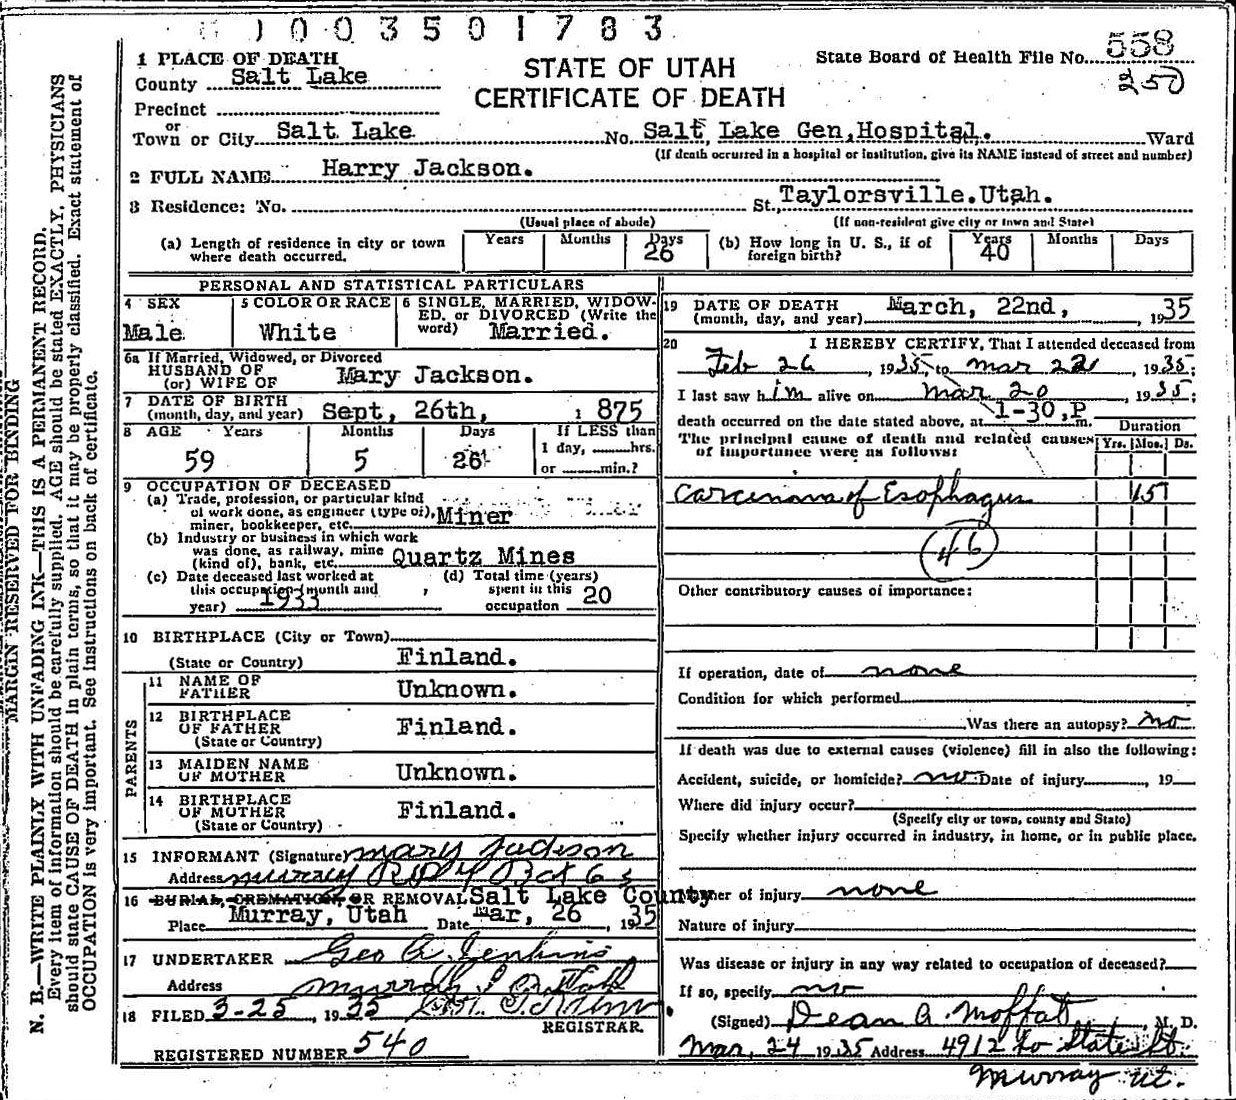 1003501783
State Board of Health File No. 558
250
STATE OF UTAH
CERTIFICATE OF DEATH
1 PLACE OF DEATH
County Salt Lake
Precinct
or
Town or City Salt Lake No. Salt Lake Gen, Hospital. Ward
(If death occurred in a hospital or institution, give its NAME instead of street and number)
2 FULL NAME Harry Jackson.
3 Residence: No. St. Taylorsville. Utah.
(Usual place of abode) (If non-resident give city or town and State)
(a) Length of residence in city or town where death occurred. Years Months Days 26
(b) How long in U. S., if of foreign birth? Years 40 Months Days
PERSONAL AND STATISTICAL PARTICULARS
4 SEX
Male
5 COLOR OR RACE
White
6 SINGLE, MARRIED, WIDOW-
ED, or DIVORCED (Write the
word) Married.
6a If Married, Widowed, or Divorced
HUSBAND OF
(or) WIFE OF Mary Jackson.
7 DATE OF BIRTH
(month, day, and year) Sept, 26th, 1875
8 AGE Years Months Days If LESS than
1 day, hrs.
59 5 26 or min.?
9 OCCUPATION OF DECEASED
(a) Trade, profession, or particular kind
of work done, as engineer (type of),
miner, bookkeeper, etc. Miner
(b) Industry or business in which work
was done, as railway, mine
(kind of), bank, etc. Quartz Mines
(c) Date deceased last worked at
this occupation (month and
year) 1933
(d) Total time (years)
spent in this
occupation 20
10 BIRTHPLACE (City or Town)
(State or Country) Finland.
PARENTS
11 NAME OF
FATHER Unknown.
12 BIRTHPLACE
OF FATHER Finland.
(State or Country)
13 MAIDEN NAME
OF MOTHER Unknown.
14 BIRTHPLACE
OF MOTHER Finland.
(State or Country)
15 INFORMANT (Signature) Mary Jackson
Address Murray RD 4 Box 63
16 BURIAL, CREMATION, OR REMOVAL Salt Lake County
Place Murray, Utah Date Mar, 26 1935
17 UNDERTAKER Geo A. Jenkins
Address Murray Utah
18 FILED 3-25, 1935
REGISTRAR.
REGISTERED NUMBER 540
19 DATE OF DEATH
(month, day, and year) March, 22nd, 1935
20 I HEREBY CERTIFY, That I attended deceased from
Feb 26, 1935, to Mar 22, 1935;
I last saw him alive on Mar 20, 1935;
death occurred on the date stated above, at 1-30, P m.
The principal cause of death and related causes
of importance were as follows:
Duration
Yrs. Mos. Ds.
Carcinoma of Esophagus 15
46
Other contributory causes of importance:
If operation, date of none
Condition for which performed
Was there an autopsy? no
If death was due to external causes (violence) fill in also the following:
Accident, suicide, or homicide? no Date of injury , 19
Where did injury occur?
(Specify city or town, county and State)
Specify whether injury occurred in industry, in home, or in public place.
Manner of injury none
Nature of injury
Was disease or injury in any way related to occupation of deceased?
If so, specify no
(Signed) Dean A. Moffat, M. D.
Mar, 24 1935 Address 4912 So State St.
Murray Ut.
MARGIN RESERVED FOR BINDING
N. B.—WRITE PLAINLY WITH UNFADING INK—THIS IS A PERMANENT RECORD.
Every item of information should be carefully supplied. AGE should be stated EXACTLY, PHYSICIANS
should state CAUSE OF DEATH in plain terms, so that it may be properly classified. Exact statement of
OCCUPATION is very important. See instructions on back of certificate.